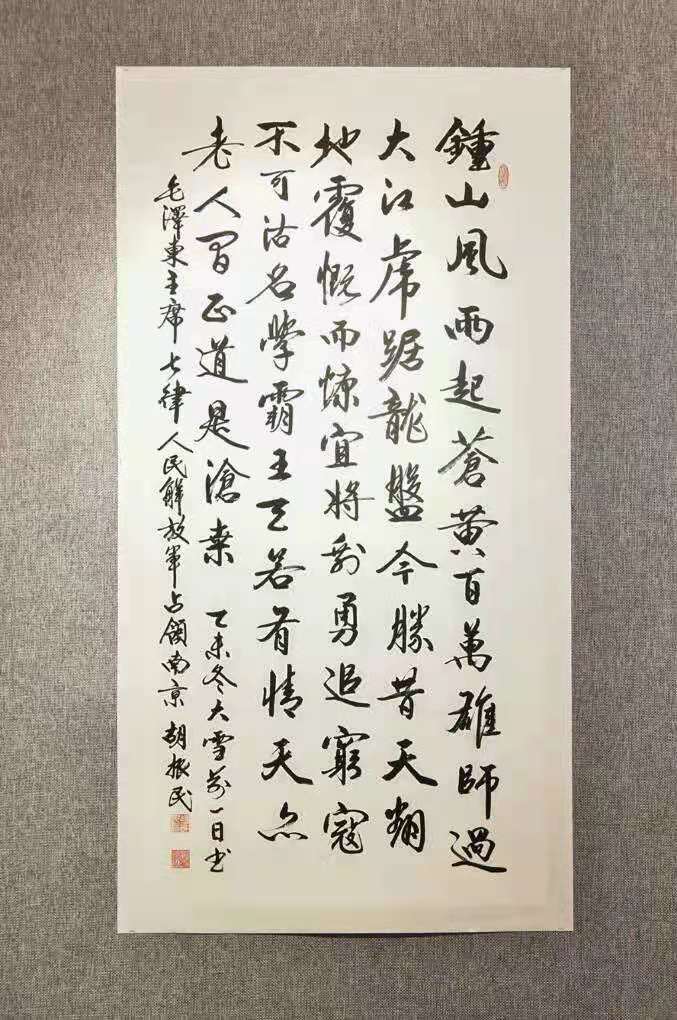 鍾山風雨起蒼黃百萬雄師過
大江虎踞龍盤今勝昔天翻
地覆慨而慷宜將剩勇追窮寇
不可沽名學霸王天若有情天亦
老人間正道是滄桑 乙未冬大雪前一日书
毛澤東主席七律人民解放軍占領南京 胡振民